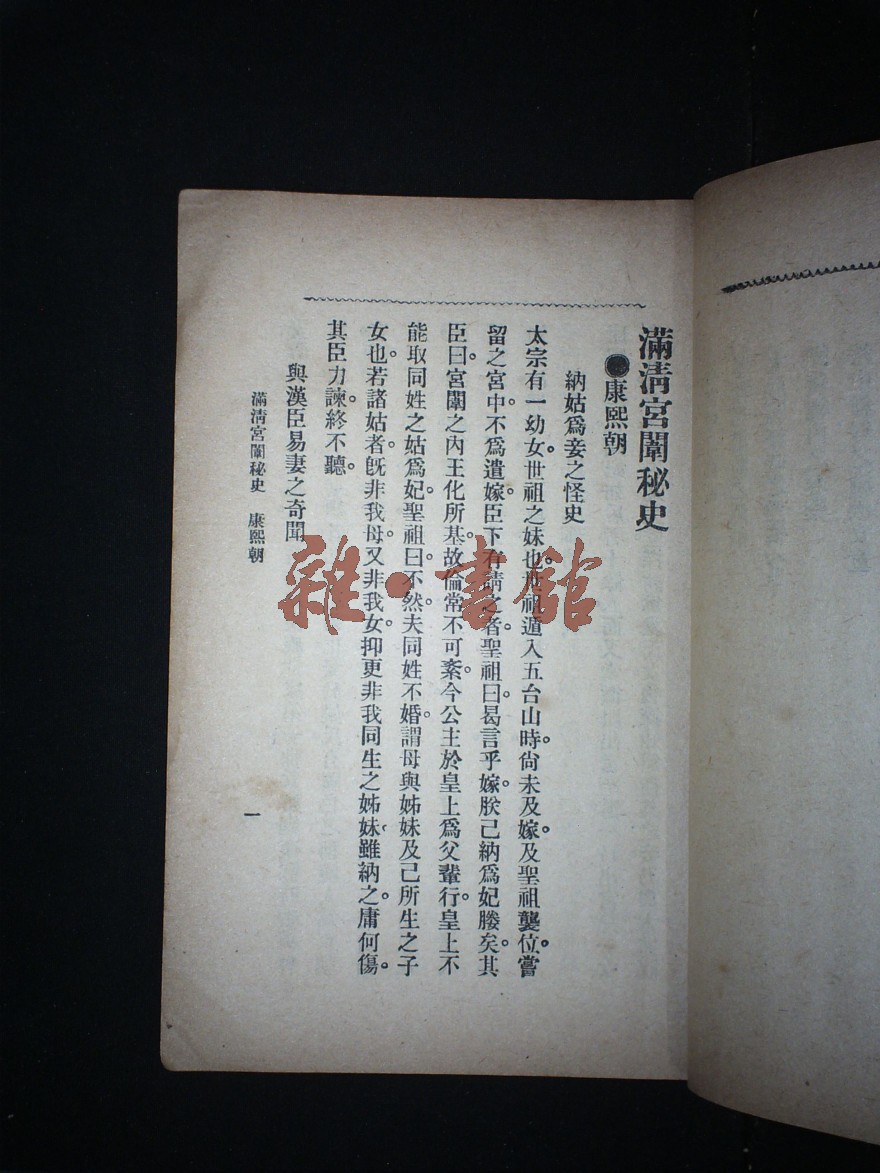 滿淸宮闈秘史
●康熙朝
納姑爲妾之怪史
太宗有一幼女。世祖之妹也。世祖遁入五台山時。尙未及嫁。及聖祖襲位。嘗
留之宮中。不爲遣嫁。臣下有請之者。聖祖曰。曷言乎嫁。朕己納爲妃媵矣。其
臣曰。宮闈之內。王化所基。故倫常不可紊。今公主於皇上爲父輩行。皇上不
能取同姓之姑爲妃。聖祖曰。不然。夫同姓不婚。謂母與姊妹及己所生之子
女也。若諸姑者。旣非我母。又非我女。抑更非我同生之姊妹。雖納之。庸何傷。
其臣力諫。終不聽。
與漢臣易妻之奇聞
滿淸宮闈秘史 康熙朝
一
雜·書館